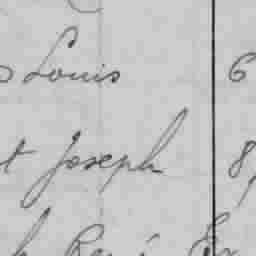 Louis 6
t Joseph 8
René